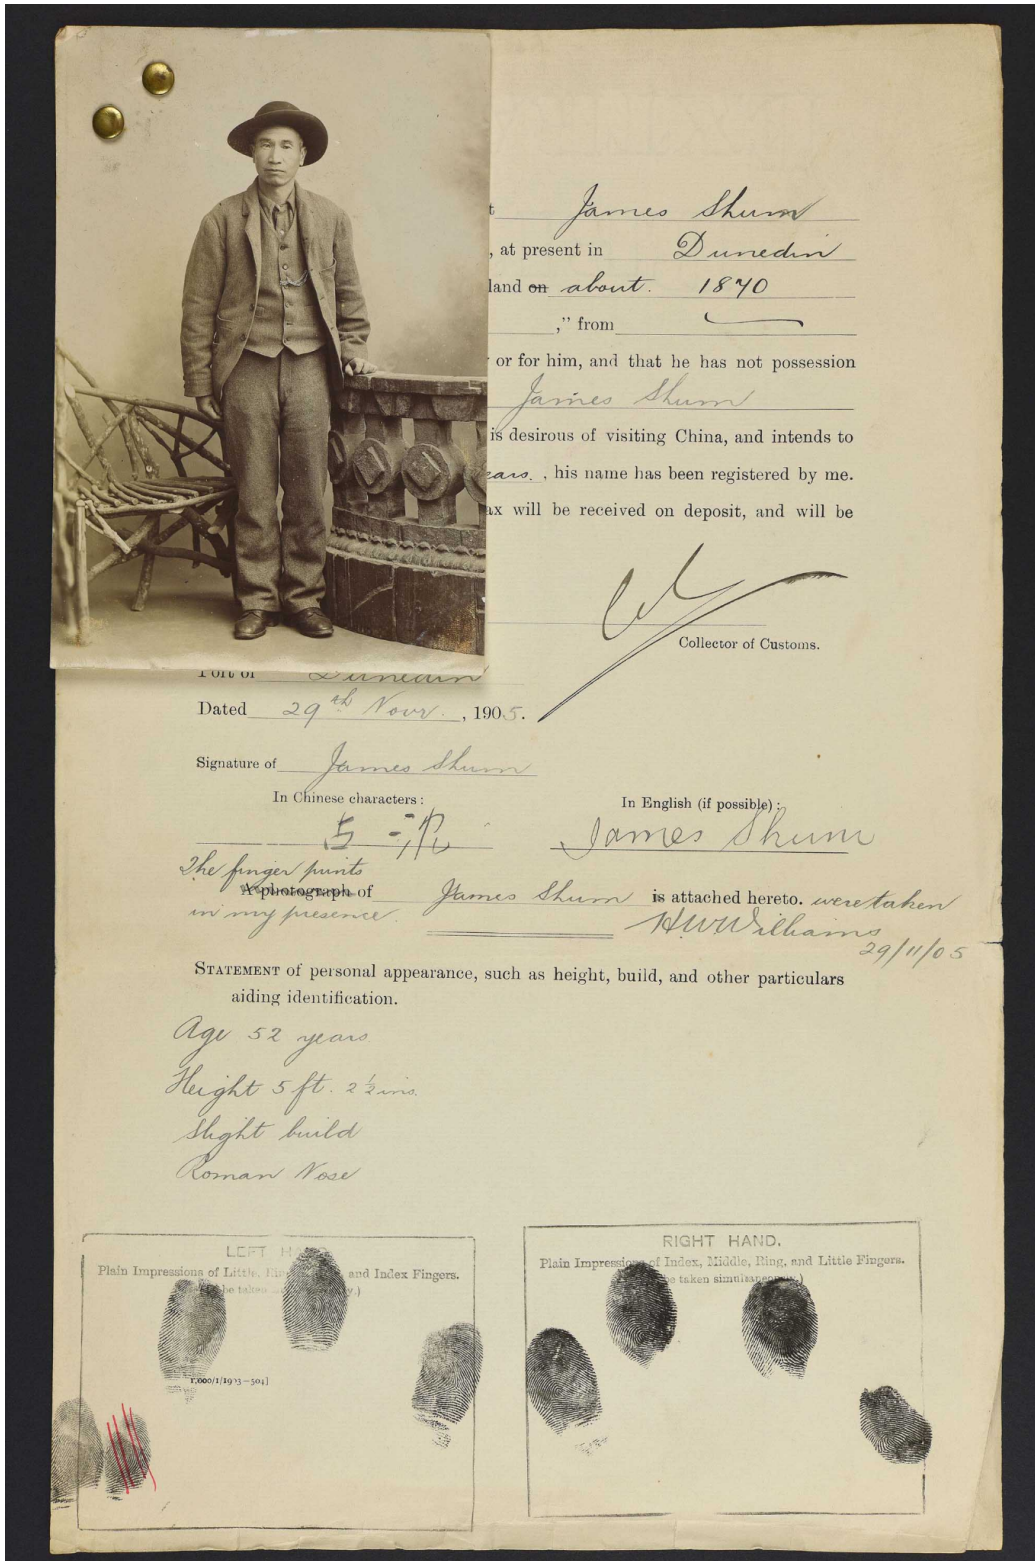 James Shum
, at present in Dunedin
land on about. 1870
," from
or for him, and that he has not possession
James Shum
is desirous of visiting China, and intends to
ears. , his name has been registered by me.
ax will be received on deposit, and will be
Collector of Customs.
Port of Dunedin
Dated 29th Novr. , 1905.
Signature of James Shum
In Chinese characters :
In English (if possible) :
James Shum
The finger prints
A photograph of James Shum is attached hereto. were taken
in my presence.
HWWilliams
29/11/05
STATEMENT of personal appearance, such as height, build, and other particulars
aiding identification.
Age 52 years
Height 5 ft. 2½ ins.
Slight build
Roman Nose
LEFT HAND.
Plain Impressions of Little, and Index Fingers.
be taken
1,000/1/1903—504]
RIGHT HAND.
Plain Impressions of Index, Middle, Ring, and Little Fingers.
be taken simultaneously.)